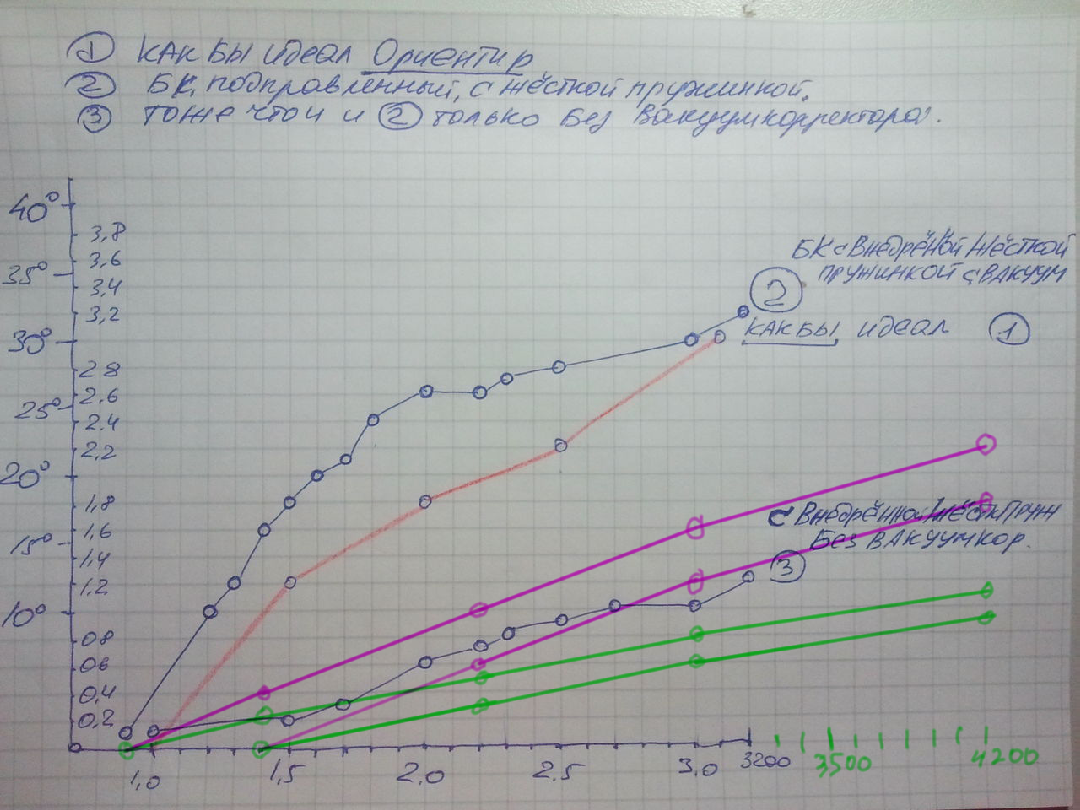 ① КАК БЫ идеал Ориентир
② БК, подправленный, с жёсткой пружинкой.
③ тоже что и ② только Без Вакуумкорректора.
40°
3,8
БК с Внедрёной жёсткой
3,6
35°
пружинкой с ВАКУУМ
3,4
②
3,2
30°
КАК БЫ, идеал ①
2,8
2,6
25°
2,4
2,2
20°
1,8
с Внедрённой жёстк Пруж
1,6
15°
Без ВАКУУМКОР.
1,4
③
1,2
10°
0,8
0,6
0,4
0,2
1,0 1,5 2,0 2,5 3,0 3200 3500 4200